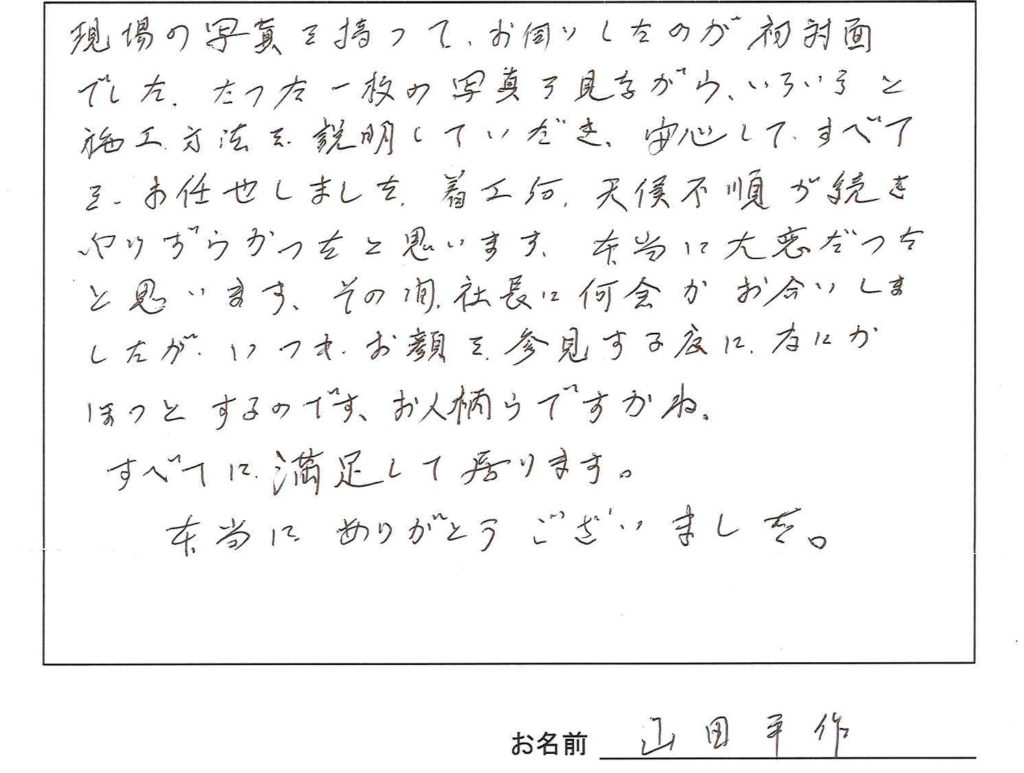 現場の写真を持って、お伺いしたのが初対面
でした。たった一枚の写真を見ながら、いろいろと
施工方法を、説明していだき、安心して、すべて
を、お任せしました。着工後、天候不順が続き
やりずらかったと思います。本当に大変だった
と思います、その間、社長に何会かお会いしま
したが、いつも、お顔を、参見する度に、なにか
ほっとするのです、お人柄らですかね。
すべてに、満足して居ります。
本当に、ありがとうございました。
お名前 山田平作